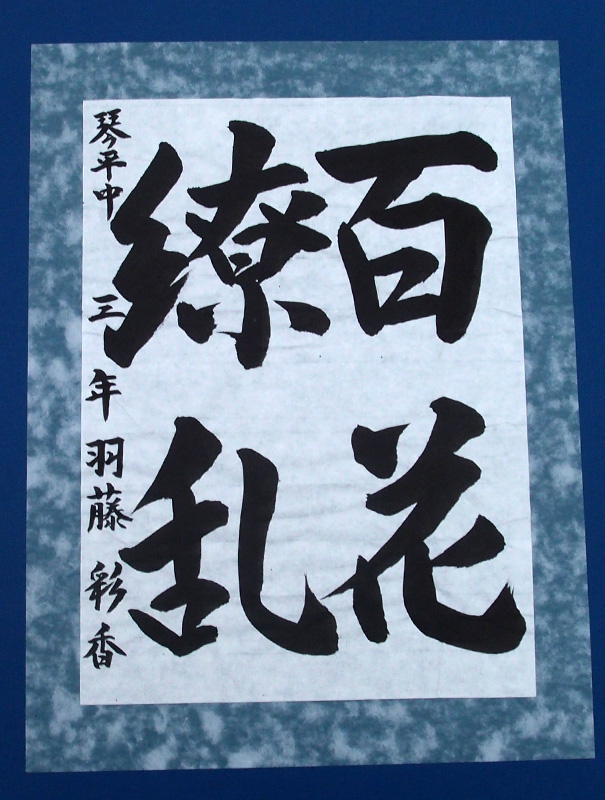 百花
繚乱
琴平中 三年 羽藤 彩香